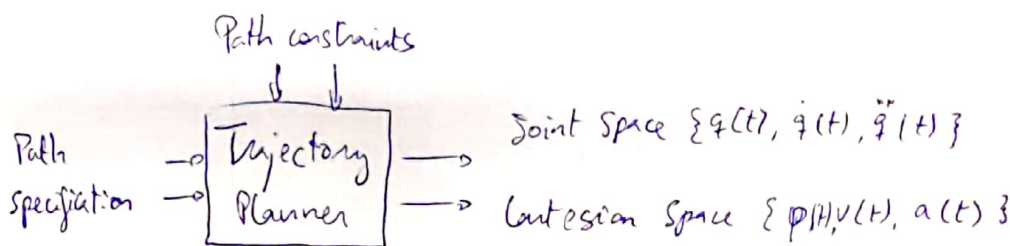 Path constraints
Path
specification
Trajectory
Planner
Joint Space {q(t), q̇(t), q̈(t)}
Cartesian Space {p(t), v(t), a(t)}